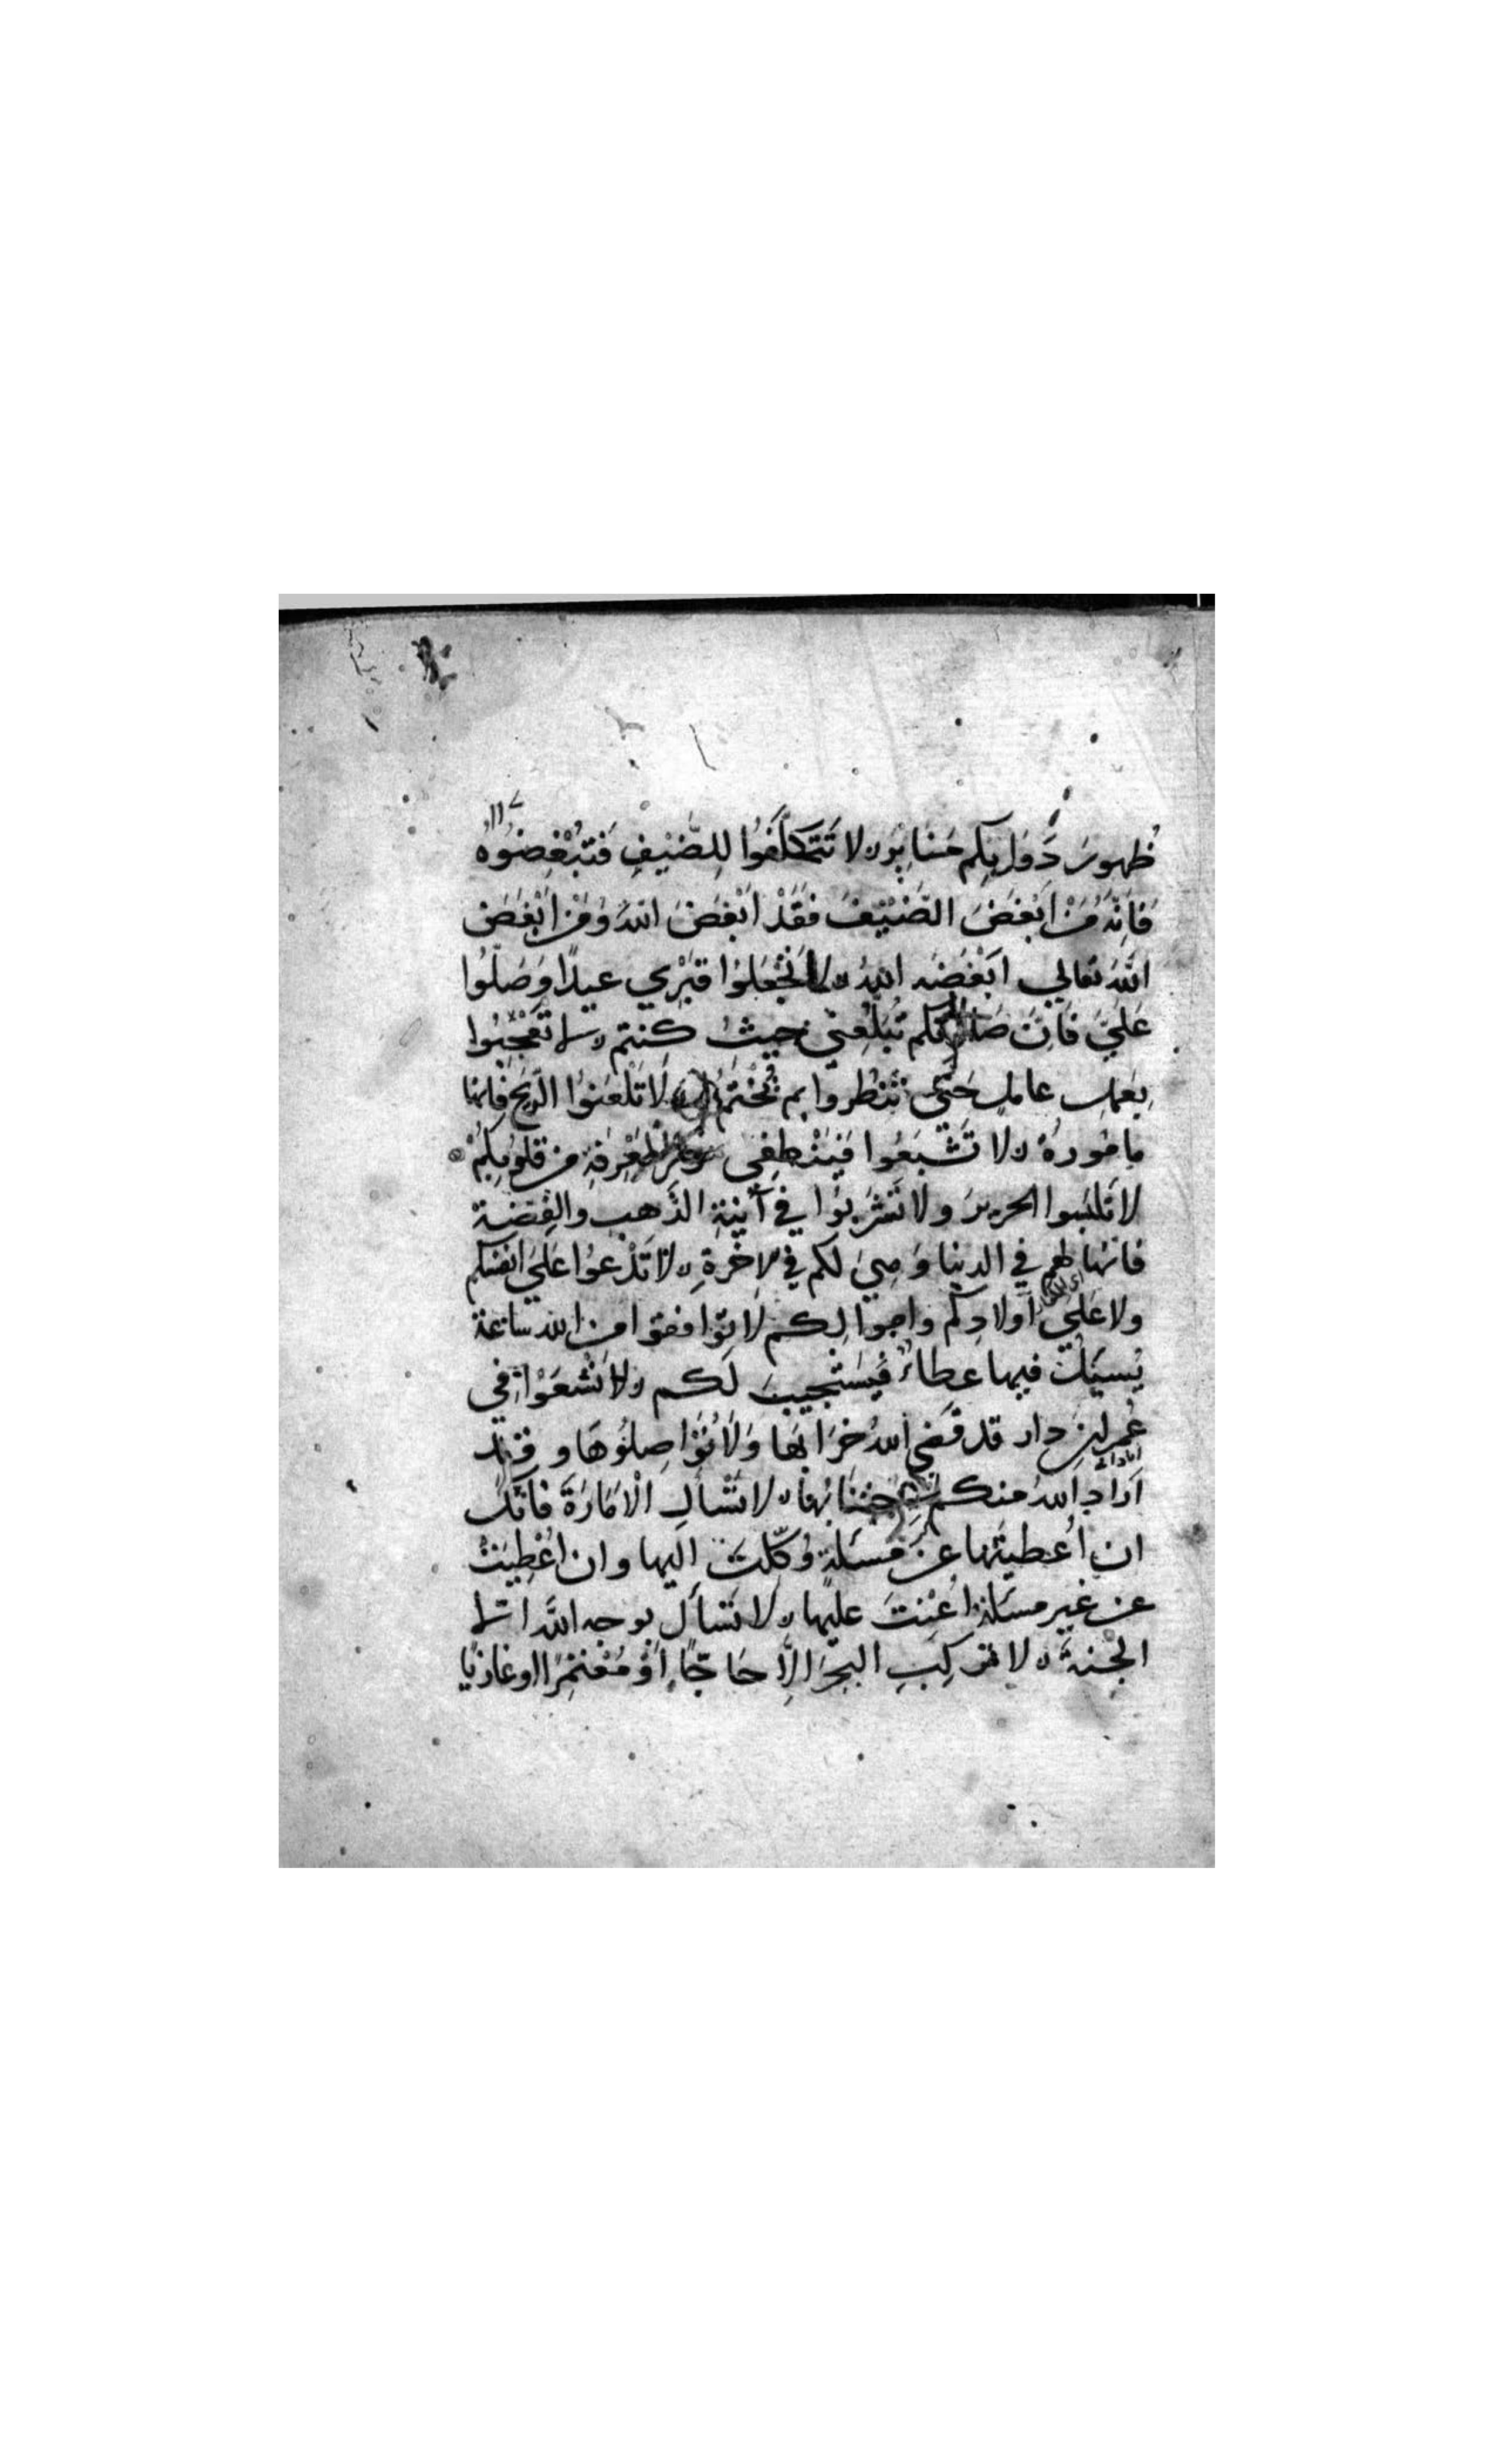 ظُهورَ دَوَابِكم مَنَابِرَ لا تَتَكَلَّفُوا لِلضَّيْفِ فَتُبْغِضُوهُ
فَاِنَّهُ مَنْ اَبْغَضَ الضَّيْفَ فَقَدْ اَبْغَضَ اللهَ وَمَنْ اَبْغَضَ
اللَّهَ تعالي اَبْغَضَه اللهُ لا تَجْعَلُوا قَبْرِي عيدًا وَصَلُّوا
عَلَيَّ فَاِنَّ صَلاتكم تَبْلُغُني حيثُ كنتم لا تَعْجَبُوا
بِعَمَلِ عاملٍ حَتّي تَنْظُروا بم يُخْتَمُ له لَا تَلْعَنُوا الرّيحَ فَانها
مامُورةٌ لا تَشْبَعُوا فَيَنْطَفِي نور المَعْرِفَةِ من قلوبِكُمْ
لا تَلبَسوا الحريرَ ولا تَشْرَبُوا في آنِيَةِ الذَّهب والفِضَّة
فَانّها لهم في الدنيا وَهِيَ لكم في الاخرةِ لا تَدْعُوا عَلَي انفسكم
اي للكفار
ولا عَلَي اولادِكم واموالِكم لا تُوافقوا من الله ساعةً
يُسئلُ فيها عطاءٌ فَيَستَجيبَ لكم لا تَسْعَوْا في
عُمرانِ دار قد قَضَي اللهُ خَرَابَها وَلَا تُوَاصِلُوهَا وقد
اَرَادَ اللهُ منكم اجتنابُها لا تَسْأَلِ الْاَمَارَةَ فَانَّكَ
ان اُعطيتَها عن مَسئَلةٍ وُكِّلتَ اليها وان اُعْطِيتَ
عن غير مسئلةٍ اُعِنْتَ عليها لا تَسْأل بوجه اللَّه الا
الجنّةَ لا تركَبِ البَحرَ اِلَّا حَاجًّا اَوْ مُعْتَمِرًا او غازيًا